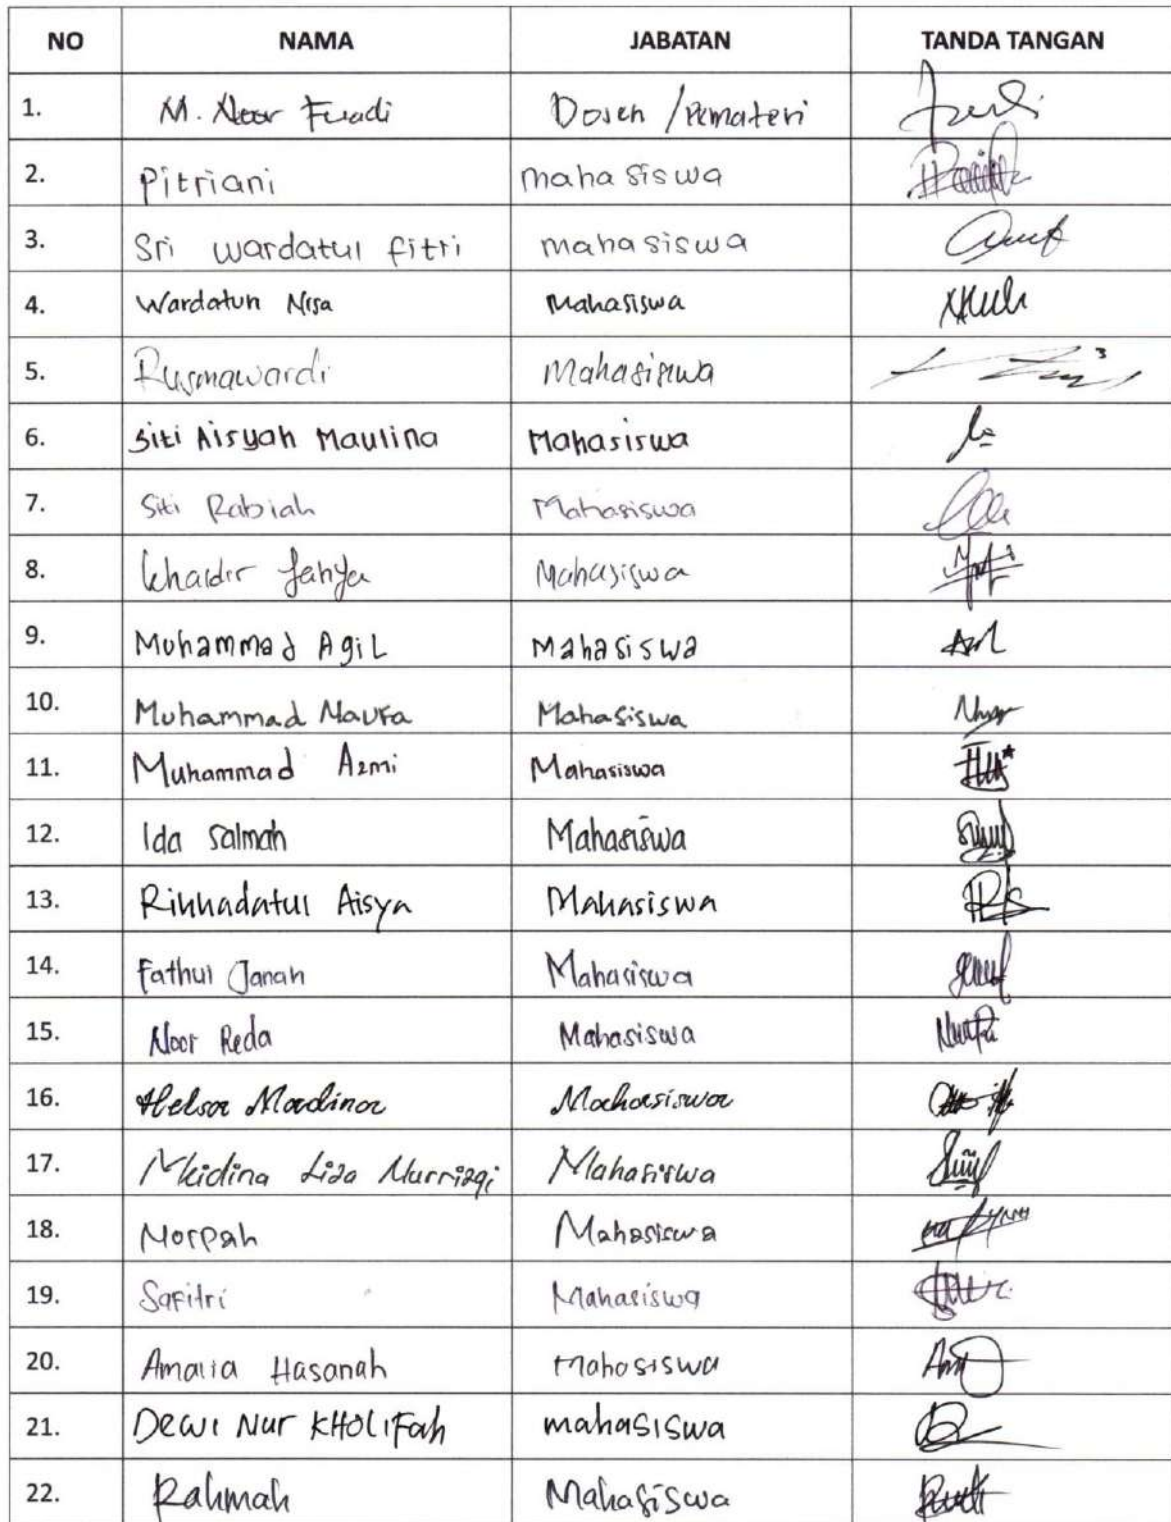 NO NAMA JABATAN TANDA TANGAN
1. M. Noor Fuadi Dosen / Pemateri
2. Pitriani mahasiswa
3. Sri wardatul fitri mahasiswa
4. Wardatun Nisa Mahasiswa
5. Rusmawardi Mahasiswa
6. Siti Aisyah Maulina Mahasiswa
7. Siti Rabiah Mahasiswa
8. Khaidir Mahasiswa
9. Muhammad Agil Mahasiswa
10. Muhammad Mahasiswa
11. Muhammad Azmi Mahasiswa
12. Ida Salmah Mahasiswa
13. Aisya Mahasiswa
14. Fathul Janah Mahasiswa
15. Noor Reda Mahasiswa
16. Helsa Madina Mahasiswa
17. Liza Nurrizqi Mahasiswa
18. Norpah Mahasiswa
19. Safitri Mahasiswa
20. Amalia Hasanah Mahasiswa
21. Dewi Nur KHOLIFah mahasiswa
22. Rahmah Mahasiswa